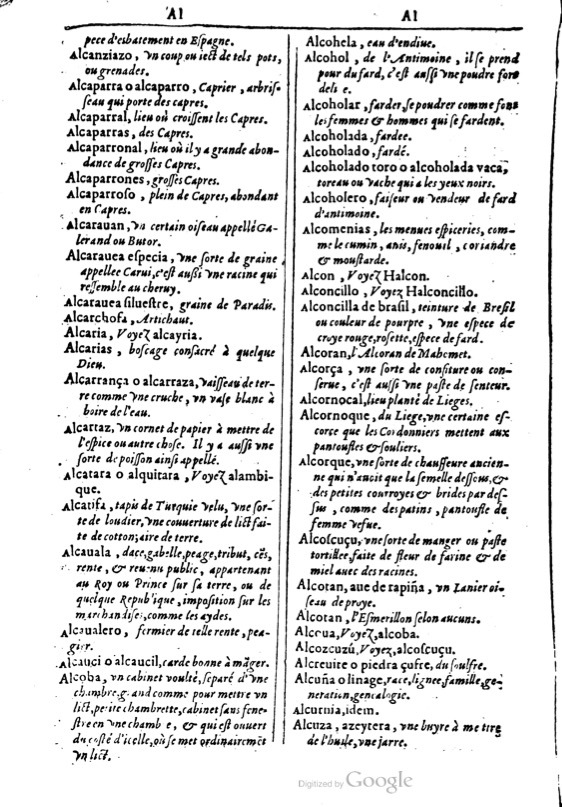 Al
pece d'esbatement en Espagne.
Alcanziazo, vn coup ou iect de tels pots,
ou grenades.
Alcaparra o alcaparro, Caprier, arbris-
seau qui porte des capres.
Alcaparral, lieu où croissent les Capres.
Alcaparras, des Capres.
Alcaparronal, lieu où il y a grande abon-
dance de grosses Capres.
Alcaparrones, grosses Capres.
Alcaparroso, plein de Capres, abondant
en Capres.
Alcarauan, vn certain oiseau appellé Ga-
lerand ou Butor.
Alcarauea especia, vne sorte de graine
appellee Carui, c'est aussi vne racine qui
ressemble au cheruy.
Alcarauea siluestre, graine de Paradis.
Alcarchofa, Artichaut.
Alcaria, Voyez alcayria.
Alcarias, boscage consacré à quelque
Dieu.
Alcarrança o alcarraza, vaisseau de ter-
re comme vne cruche, vn vase blanc à
boire de l'eau.
Alcartaz, vn cornet de papier à mettre de
l'espice ou autre chose. Il y a aussi vne
sorte de poisson ainsi appellé.
Alcatara o alquitara, Voyez alambi-
que.
Alcatifa, tapis de Turquie velu, vne sor-
te de loudier, vne couuerture de lict fai-
te de cotton; aire de terre.
Alcauala, dace, gabelle, peage, tribut, cēs,
rente, & reuenu public, appartenant
au Roy ou Prince sur sa terre, ou de
quelque Republique, imposition sur les
marchandises, comme les aydes.
Alcaualero, fermier de telle rente, pea-
gier.
Alcauci o alcaucil, carde bonne à māger.
Alcoba, vn cabinet voulté, separé d'vne
chambre, grand comme pour mettre vn
lict, petite chambrette, cabinet sans fene-
stre en vne chambre, & qui est ouuert
du costé d'icelle, où se met ordinairemēt
vn lict.
Al
Alcohela, eau d'endiue.
Alcohol, de l'Antimoine, il se prend
pour du fard, c'est aussi vne poudre fort
delie.
Alcoholar, farder, se poudrer comme font
les femmes & hommes qui se fardent.
Alcoholada, fardee.
Alcoholado, fardé.
Alcoholado toro o alcoholada vaca,
toreau ou vache qui a les yeux noirs.
Alcoholero, faiseur ou vendeur de fard
d'antimoine.
Alcomenias, les menues espiceries, com-
me le cumin, anis, fenouil, coriandre
& moustarde.
Alcon, Voyez Halcon.
Alconcillo, Voyez Halconcillo.
Alconcilla de brasil, teinture de Bresil
ou couleur de pourpre, vne espece de
croye rouge, rosette, espece de fard.
Alcoran, l'Alcoran de Mahomet.
Alcorça, vne sorte de confiture ou con-
serue, c'est aussi vne paste de senteur.
Alcornocal, lieu planté de Lieges.
Alcornoque, du Liege, vne certaine es-
corce que les Cordonniers mettent aux
pantoufles & souliers.
Alcorque, vne sorte de chauffeure ancien-
ne qui n'auoit que la semelle dessous, &
des petites courroyes & brides par des-
sus, comme des patins, pantoufle de
femme vefue.
Alcoscuçu, vne sorte de manger ou paste
tortillee, faite de fleur de farine & de
miel auec des racines.
Alcotan, aue de rapiña, vn Lanier oi-
seau de proye.
Alcotan, l'Esmerillon selon aucuns.
Alcoua, Voyez, alcoba.
Alcozcuzú, Voyez, alcoscuçu.
Alcreuite o piedra çufre, du soulfre.
Alcuña o linage, race, lignee, famille, ge-
neration, genealogie.
Alcurnia, idem.
Alcuza, azeytera, vne buyre à mettre
de l'huile, vne jarre.
Digitized by Google